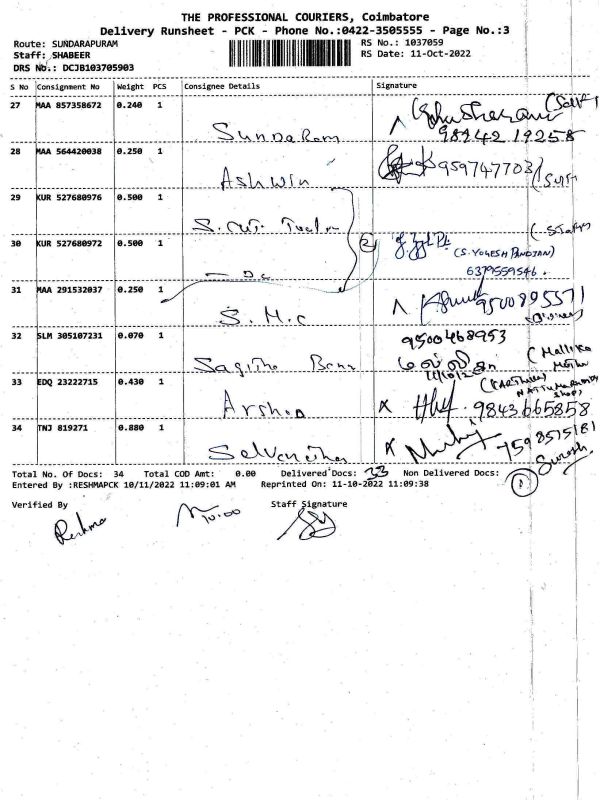 THE PROFESSIONAL COURIERS, Coimbatore
Delivery Runsheet - PCK - Phone No.:0422-3505555 - Page No.:3
Route: SUNDARAPURAM
RS No.: 1037059
Staff: SHABEER
RS Date: 11-Oct-2022
DRS No.: DCJB103705903
S No Consignment No Weight PCS Consignee Details Signature
27 MAA 857358672 0.240 1 Sundaram (Self)
98942 19258
28 MAA 564420038 0.250 1 Ashwin 9597477031
29 KUR 527680976 0.500 1
30 KUR 527680972 0.500 1 2 (S. YOGESH PANDIAN)
6379559546.
31 MAA 291532037 0.250 1 S.M.C 9500895571
32 SLM 305107231 0.070 1 9500468953
(Mallika
33 EDQ 23222715 0.430 1 9843665858
34 TNJ 819271 0.880 1 7598575181
Suresh
Total No. Of Docs: 34 Total COD Amt: 0.00 Delivered Docs: 33 Non Delivered Docs: 1
Entered By :RESHMAPCK 10/11/2022 11:09:01 AM Reprinted On: 11-10-2022 11:09:38
Verified By Staff Signature
Reshma 10:00